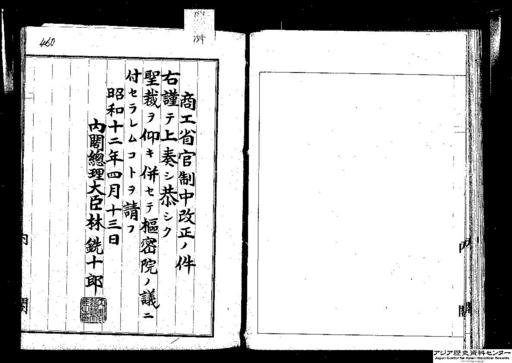 460
商工省官制中改正ノ件
右謹テ上奏シ恭シク
聖裁ヲ仰キ併セテ樞密院ノ議ニ
付セラレムコトヲ請フ
昭和十二年四月十三日
內閣總理大臣林銑十郎
內閣
アジア歴史資料センター
Japan Center for Asian Historical Records